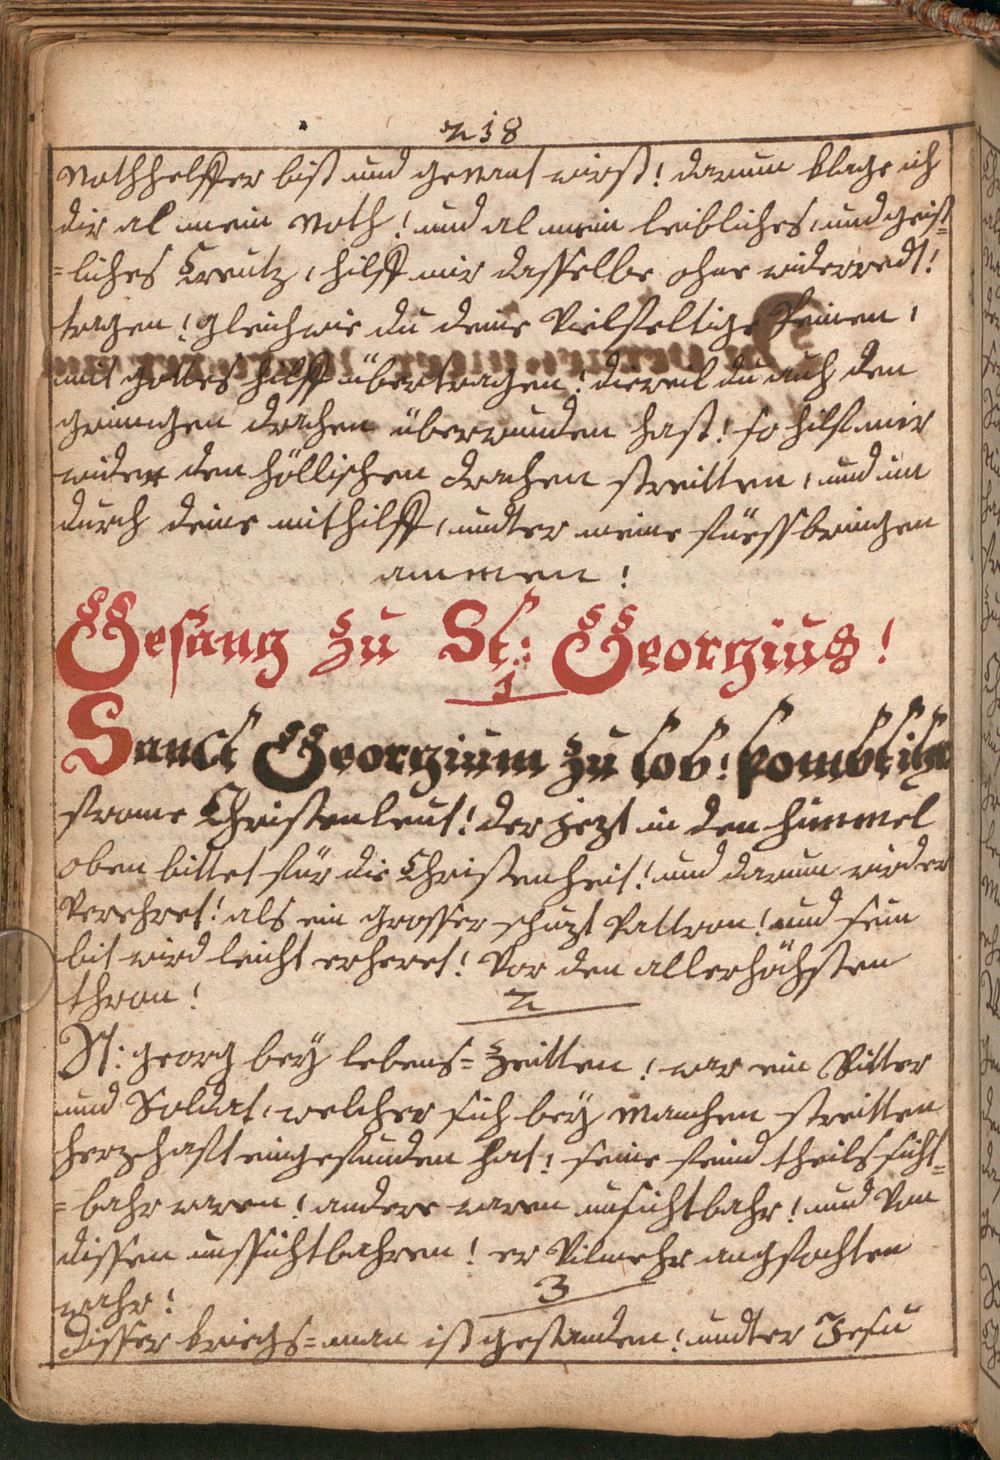 218
Nothhelffer bist und genant wirst! darum klage ich
dir al mein Noth! und al mein leibliches, und geist=
=liches Creutz, hilff mir dasselbe ohne widerredt!
tragen! gleichwie du deine Vielfeltige Peinen,
mit gottes hilff übertragen! dieweil du auch den
grimigen drachen überwunden hast! so hilf mir
wider den höllischen drachen streitten, und im
durch deine mithilff, undter meine füess bringen
ammen!
Gesang zu St: Georgius!
1
Sanct Georgium zu lob! kombt ihr
frome Christenleut! der jezt in den himmel
oben bittet für die Christenheit! und darum wird er
Verehret! als ein grosser schuzt Pattron! und sein
bit wird leicht erheret! Vor den allerhöchsten
thron!
2
St: georg bey lebens= Zeitten! war ein Ritter
und Soldat, welcher sich bey manchen streitten
herzhafft eingefunden hat! seine feind theils sicht=
=bahr waren! andere waren unsichtbahr! und Von
dissen unssichtbahren! er Vilmehr angfochten
wahr!
3
Disser kriegs=man ist gestanden! undter Jesu